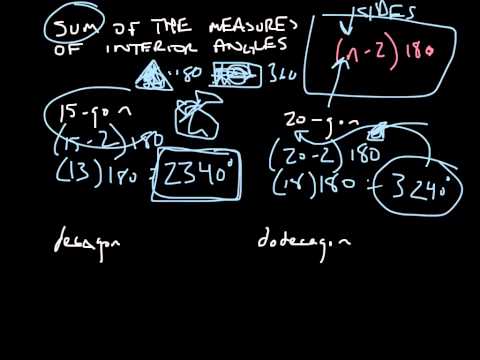 SIDES
SUM OF THE MEASURES
OF INTERIOR ANGLES
(n-2) 180
180 360
15-gon
(15-2) 180
(13) 180 = 2340°
20-gon
(20-2) 180
(18) 180 = 3240°
decagon
dodecagon